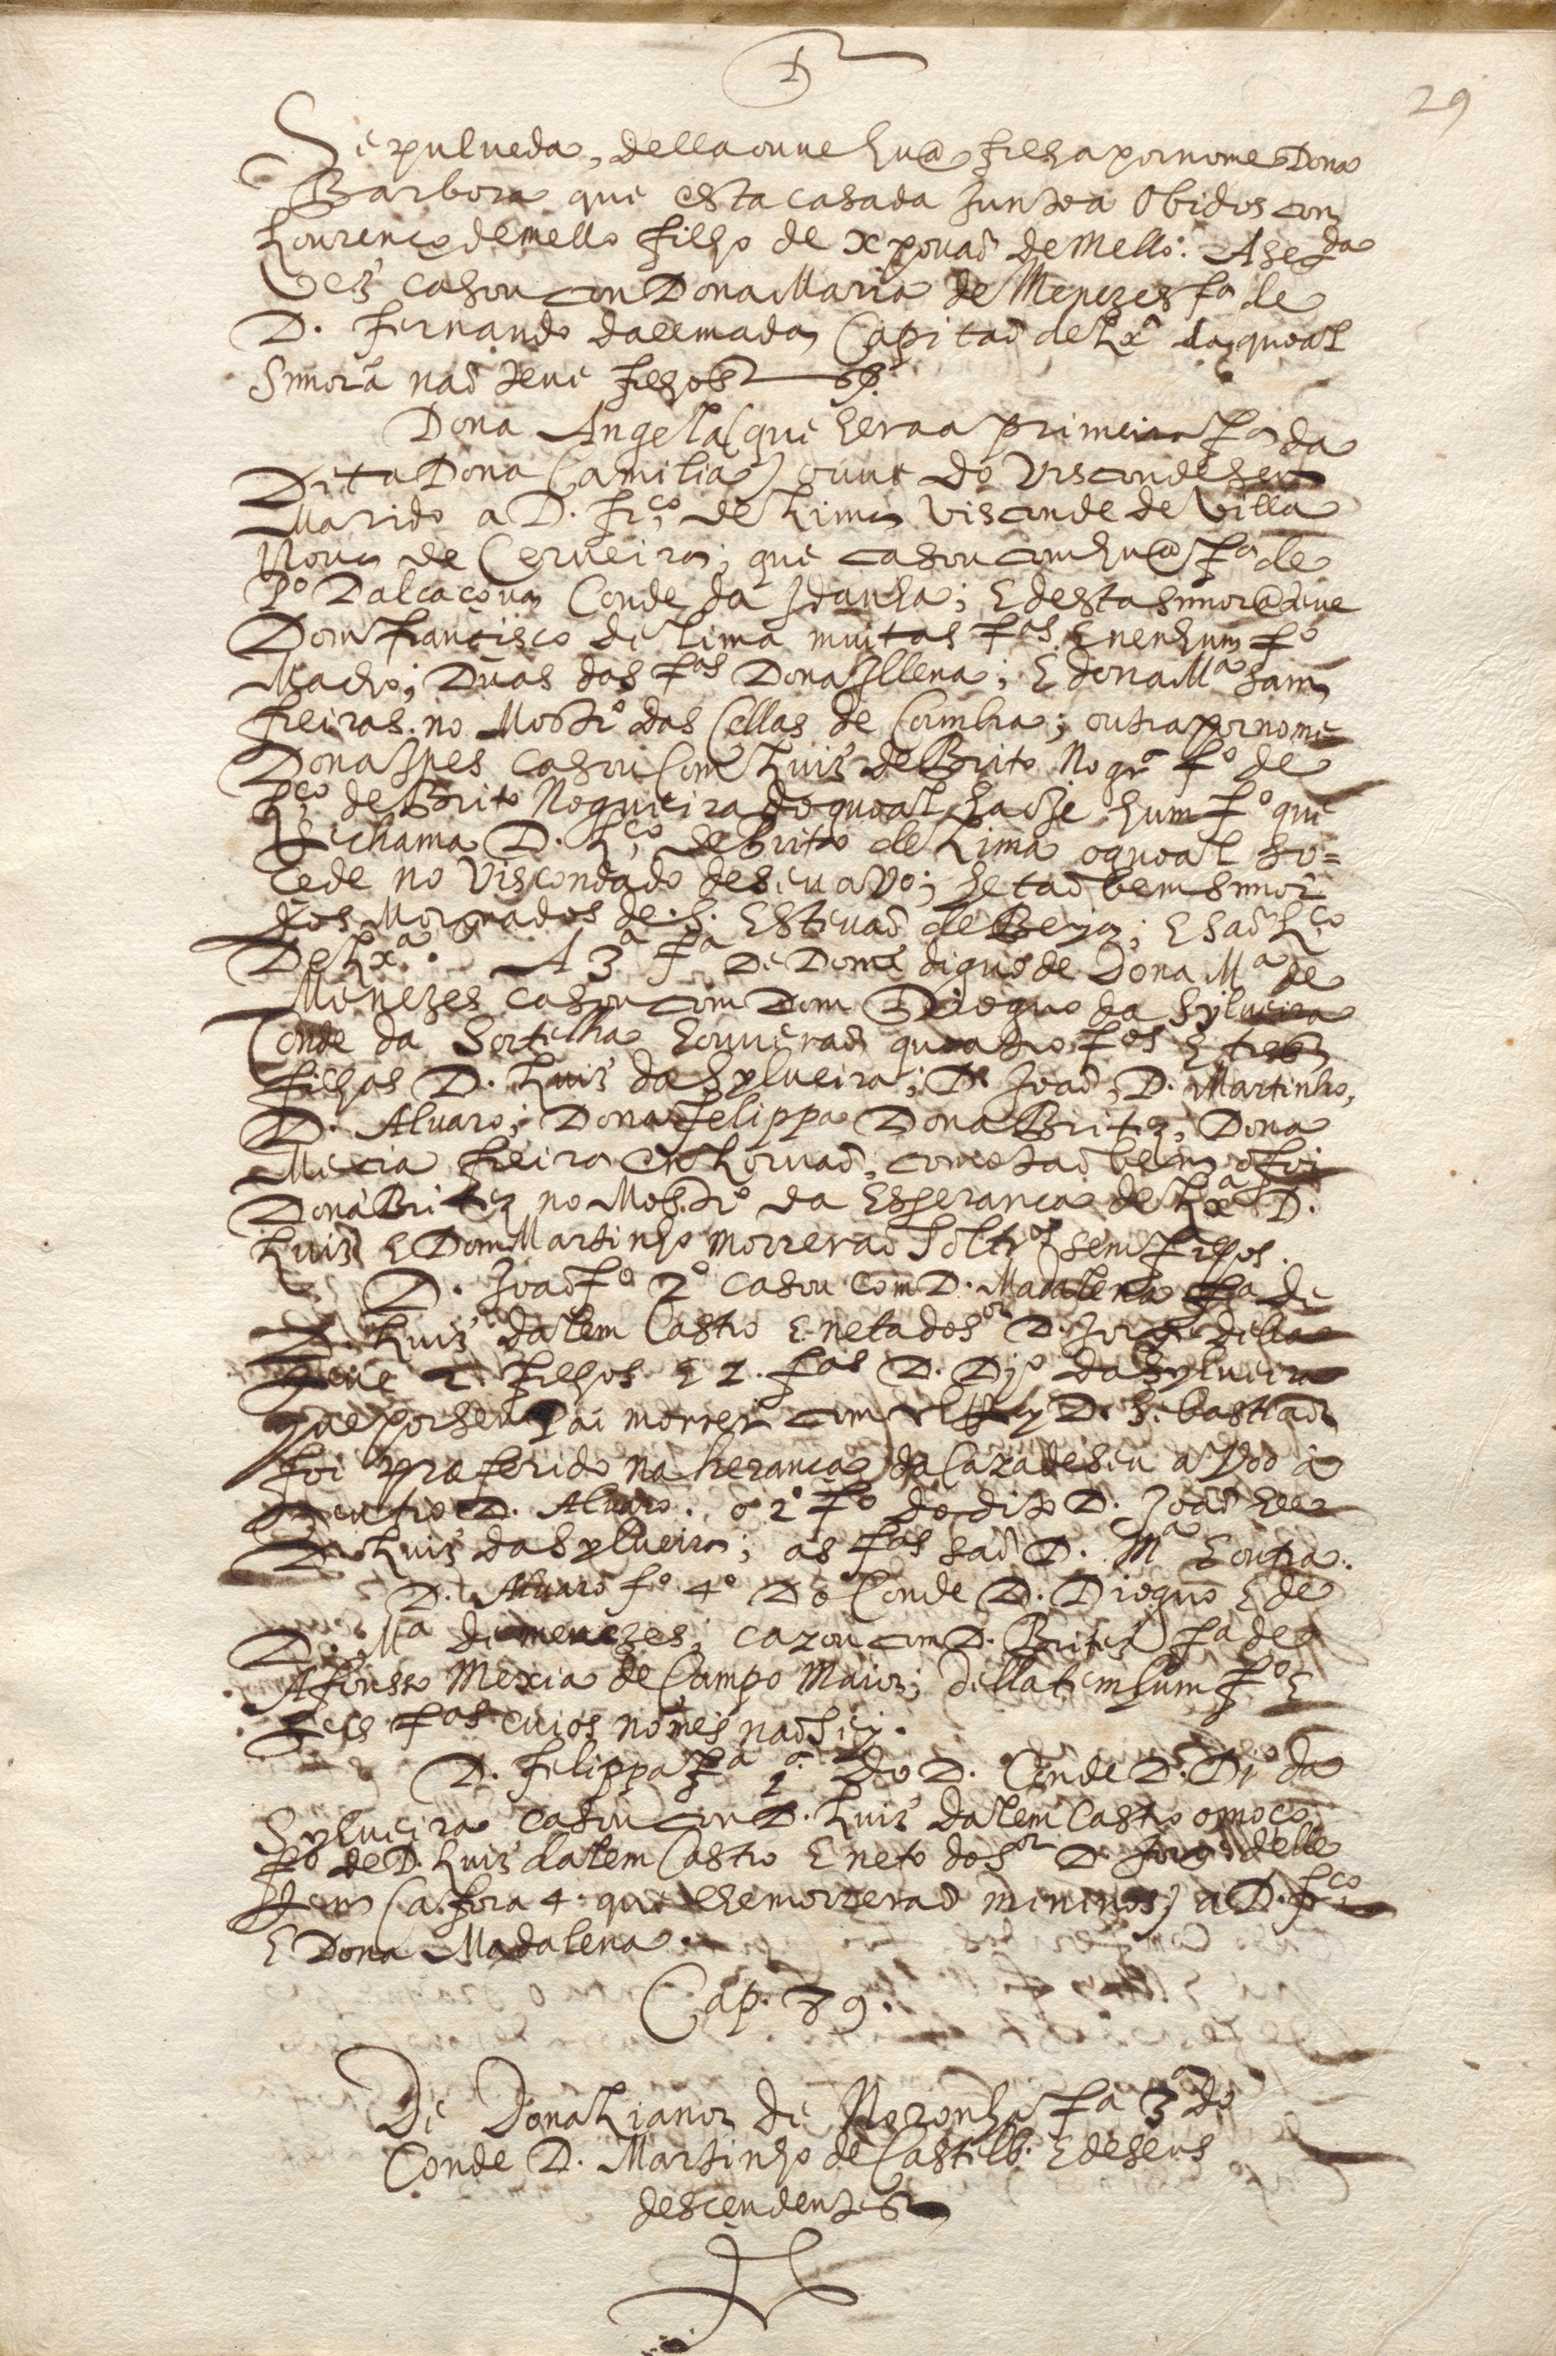 29
Sepulueda, della ouue hu@ filha por nome Dona
Barbora que esta casada Junto a Obidos com
Lourenço de mello filho de xpouaõ de Mello: A seg.da
Ves casou com Dona Maria de Menezes fa de
D. Fernando dallmada Capitaõ de Lx.a da quoal
Snnora naõ teue filhos
Dona Angella (que hera a primeira fa da
Dita Dona Camilia) ouue do Visconde seu
Marido a D. fr.co de Lima Visconde de Villa
Noua de Cerueira; que casou com hu@ fa de
P.o Dalcaçoua Conde da Idanha; E desta snnor@ teue
Dom Francisco de Lima muitas fas E nenhum fo
Macho; Duas das fas Dona Illena; E dona Ma sam
freiras no Mostr.o das Cellas de Coimbra; outra por nome
Dona Ines casou Com Luis de Brito Nogr.a fo de
L.ço de Brito Nogueira do quoal ha oJe hum fo que
se chama D. L.ço de Brito de Lima o quoal so=
cede no Viscondado de seu avo; he taõ bem snnor
dos Morguados de S. Esteuaõ de Beya; E saõ L.ço
De Lx.a. A 3a fa De Dom digno de Dona Ma de
Menezes casou com Dom Dieguo da Sylueira
Conde da Sortelha houueraõ quoatro fos E tres
filhas D. Luis da Sylueira; D. Joaõ, D. Martinho,
D. Aluaro; Dona felippa Dona Brites, Dona
Mecia freira em Loruaõ; como taõ bem o foi
Dona Brites no Mostr.o da Esperança de Lx.a D.
Luis E Dom Martinho morreraõ Soltros sem filhos.
D. Joaõ fo 2o casou com D. Madalena fa de
D. Luis dalem Castro E neta do S.or D. Jorge della
teue 2. filhos E 2. fas D. D.o da Sylueira
que por seu Pai morrer com el Rey D. Sebastiaõ
foi præferido na herança da Caza de seu avoo a
seu tio D. Aluaro. o 2o fo do dito D. Joaõ hee
D. Luis da Sylueira; as fas saõ D. Ma E outra.
D. Aluaro fo 4o Do Conde D. Dieguo E de
D. Ma de menezes; cazou com D. Brites fa de
Afonsso Mexia de Campo Maior; della tem hum fo E
seis fas cuios nomes naõ sey.
D. Felippa fa 1a do D. Conde D. D.o da
Sylueira casou com D. Luis dalem Castro o moço
fo de D. Luis dalem Castro E neto do S.or D. Jorge delle
tem (a fora 4. que lhe morreraõ mininos) a D. fr.co
E Dona Madalena.
Cap. 79.
De Dona Lianor de Noronha fa 3 do
Conde D. Martinho de Castelb. E de seus
descendentes